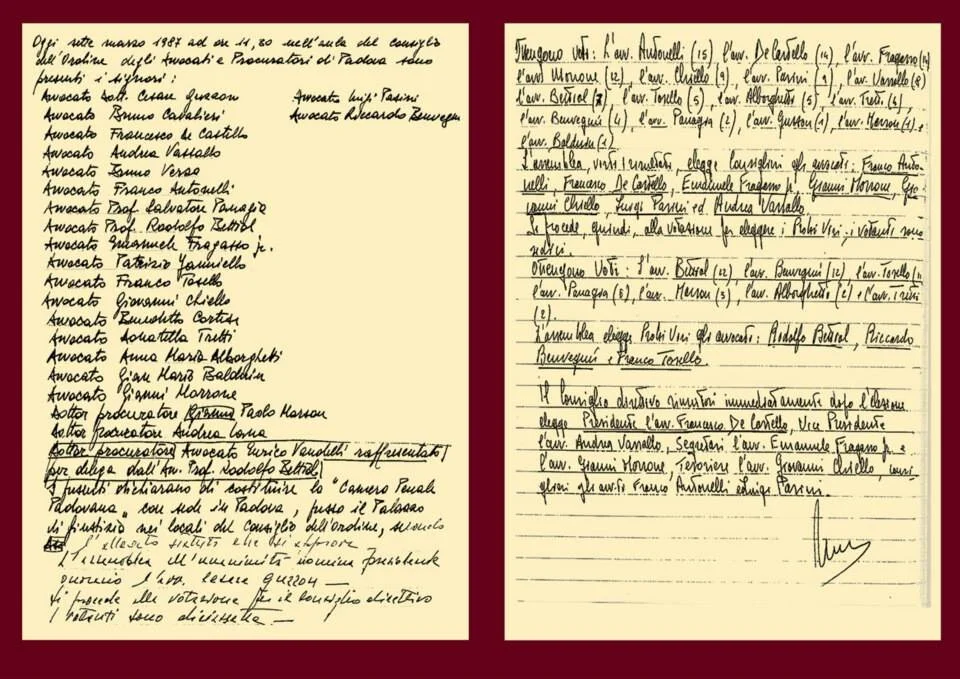 Oggi sette marzo 1987 ad ore 11,30 nell'aula del consiglio
dell'Ordine degli Avvocati e Procuratori di Padova sono
presenti i signori:
Avvocato Dott. Cesare Guzzon
Avvocato Luigi Pasini
Avvocato Bruno Cavalieri
Avvocato Riccardo Benvegnù
Avvocato Francesco De Castello
Avvocato Andrea Vassallo
Avvocato Verso
Avvocato Franco Antonelli
Avvocato Prof. Salvatore Panagia
Avvocato Prof. Rodolfo Bettiol
Avvocato Emanuele Fragasso jr.
Avvocato Patrizio Janniello
Avvocato Franco Tosello
Avvocato Giovanni Chiello
Avvocato Benedetto Cortese
Avvocato Donatella Tretti
Avvocato Anna Maria Alborghetti
Avvocato Gian Mario Balduin
Avvocato Gianni Morrone
Dottor procuratore Gianni Paolo Morson
Dottor procuratore Andrea
Dottor procuratore Avvocato Enrico Vandelli rappresentato
per delega dall'Avv. Prof. Rodolfo Bettiol
I presenti dichiarano di costituire la "Camera Penale
Padovana" con sede in Padova, presso il Palazzo
di giustizia nei locali del Consiglio dell'Ordine, secondo
l'allegato statuto che si approva
L'assemblea all'unanimità nomina Presidente
onorario l'avv. Cesare Guzzon —
Si procede alla votazione per il consiglio direttivo
I votanti sono diciassette —
Ottengono voti: L'avv. Antonelli (15) l'avv. De Castello (14), l'avv. Fragasso
l'avv Morrone (12), l'avv. Chiello (9), l'avv. Pasini (9), l'avv. Vassallo (8)
l'avv. Bettiol (7), l'avv. Tosello (5), l'avv Alborghetti (5), l'avv. Tretti (4),
l'avv. Benvegnù (4), l'avv Panagia (2), l'avv. Guzzon (1), l'avv. Morson (1) e
l'avv. Balduin (1)
L'assemblea, visti i risultati, elegge Consiglieri gli avvocati: Franco Anto-
nelli, Francesco De Castello, Emanuele Fragasso jr. Gianni Morrone, Gio-
vanni Chiello, Luigi Pasini ed Andrea Vassallo.
Si procede, quindi, alla votazione per eleggere i Probi Viri; i votanti sono
sedici.
Ottengono Voti: L'avv. Bettiol (12), l'avv. Benvegnù (12), l'avv. Tosello
l'avv. Panagia (5), l'avv. Morson (3), l'avv. Alborghetti (2) e l'avv. Tretti
(2).
L'assemblea elegge Probi Viri gli avvocati: Rodolfo Bettiol, Riccardo
Benvegnù e Franco Tosello.
Il Consiglio direttivo riunitosi immediatamente dopo l'elezione
elegge Presidente l'avv. Francesco De Castello, Vice Presidente
l'avv. Andrea Vassallo, Segretari l'avv. Emanuele Fragasso jr. e
l'avv. Gianni Morrone, Tesoriere l'avv. Giovanni Chiello, consi-
glieri gli avv.ti Franco Antonelli e Luigi Pasini.